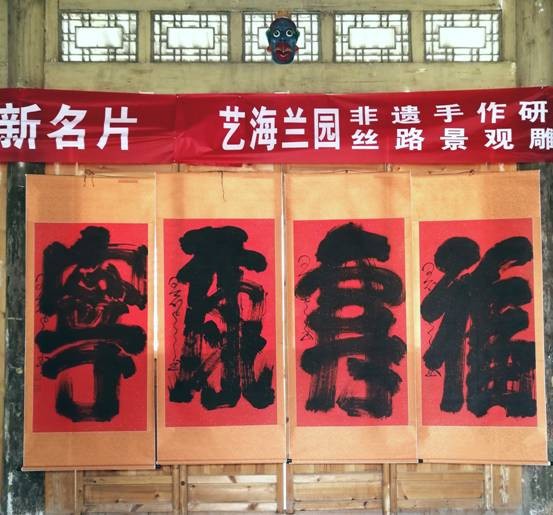 新名片
艺海兰园
非遗手作研
丝路景观雕
福
壽
康
寧